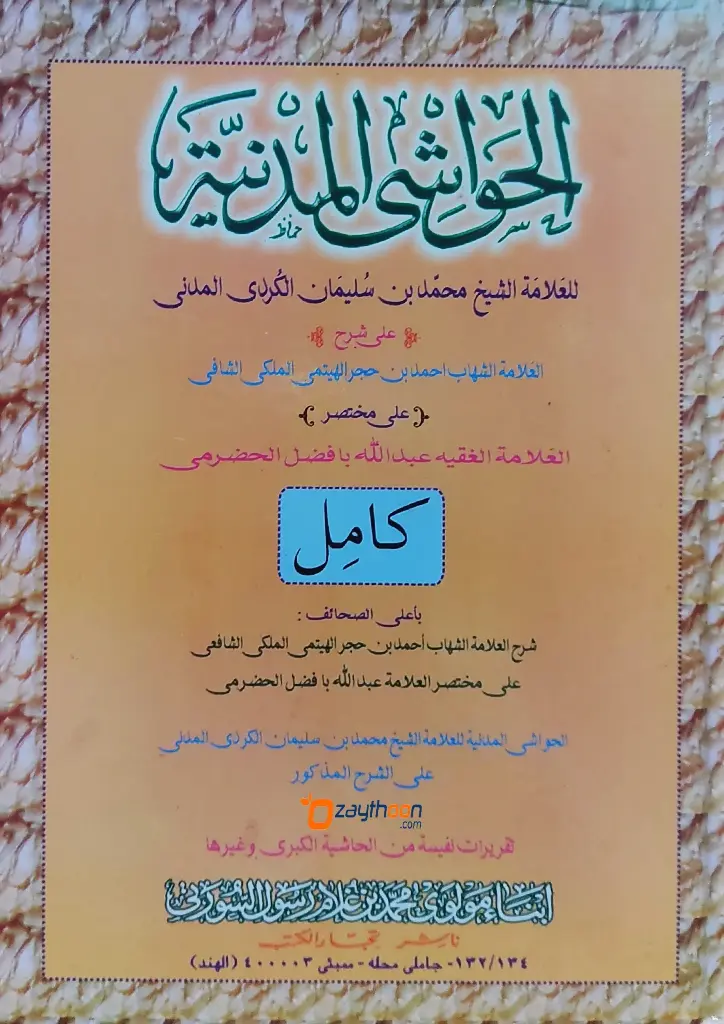 الحَوَاشِى المَدَنِيَّة
حماظ
للعَلامَة الشيخ محمّد بن سُليمَان الكُردى المدنى
على شرح
العَلامة الشهاب احمد بن حجر الهيتمى الملكى الشافى
﴿على مختصر﴾
العَلامة الفقيه عبدالله بافضل الحضرمى
كامِل
بأعلى الصحائف :
شرح العلامة الشهاب أحمد بن حجر الهيتمى الملكى الشافعى
على مختصر العلامة عبدالله بافضل الحضرمى
الحواشى المدنية للعلامة الشيخ محمد بن سليمان الكردى المدنى
على الشرح المذكور
ozaythoon
.com
تقريرات نفيسة من الحاشية الكبرى وغيرها
ابناء مولوى محمد بن غلام رسول السورتى
ناشر تجار الكتب
١٣٢/١٣٤- جاملى محله - ممبئى ٤٠٠٠٠٣ (الهند)